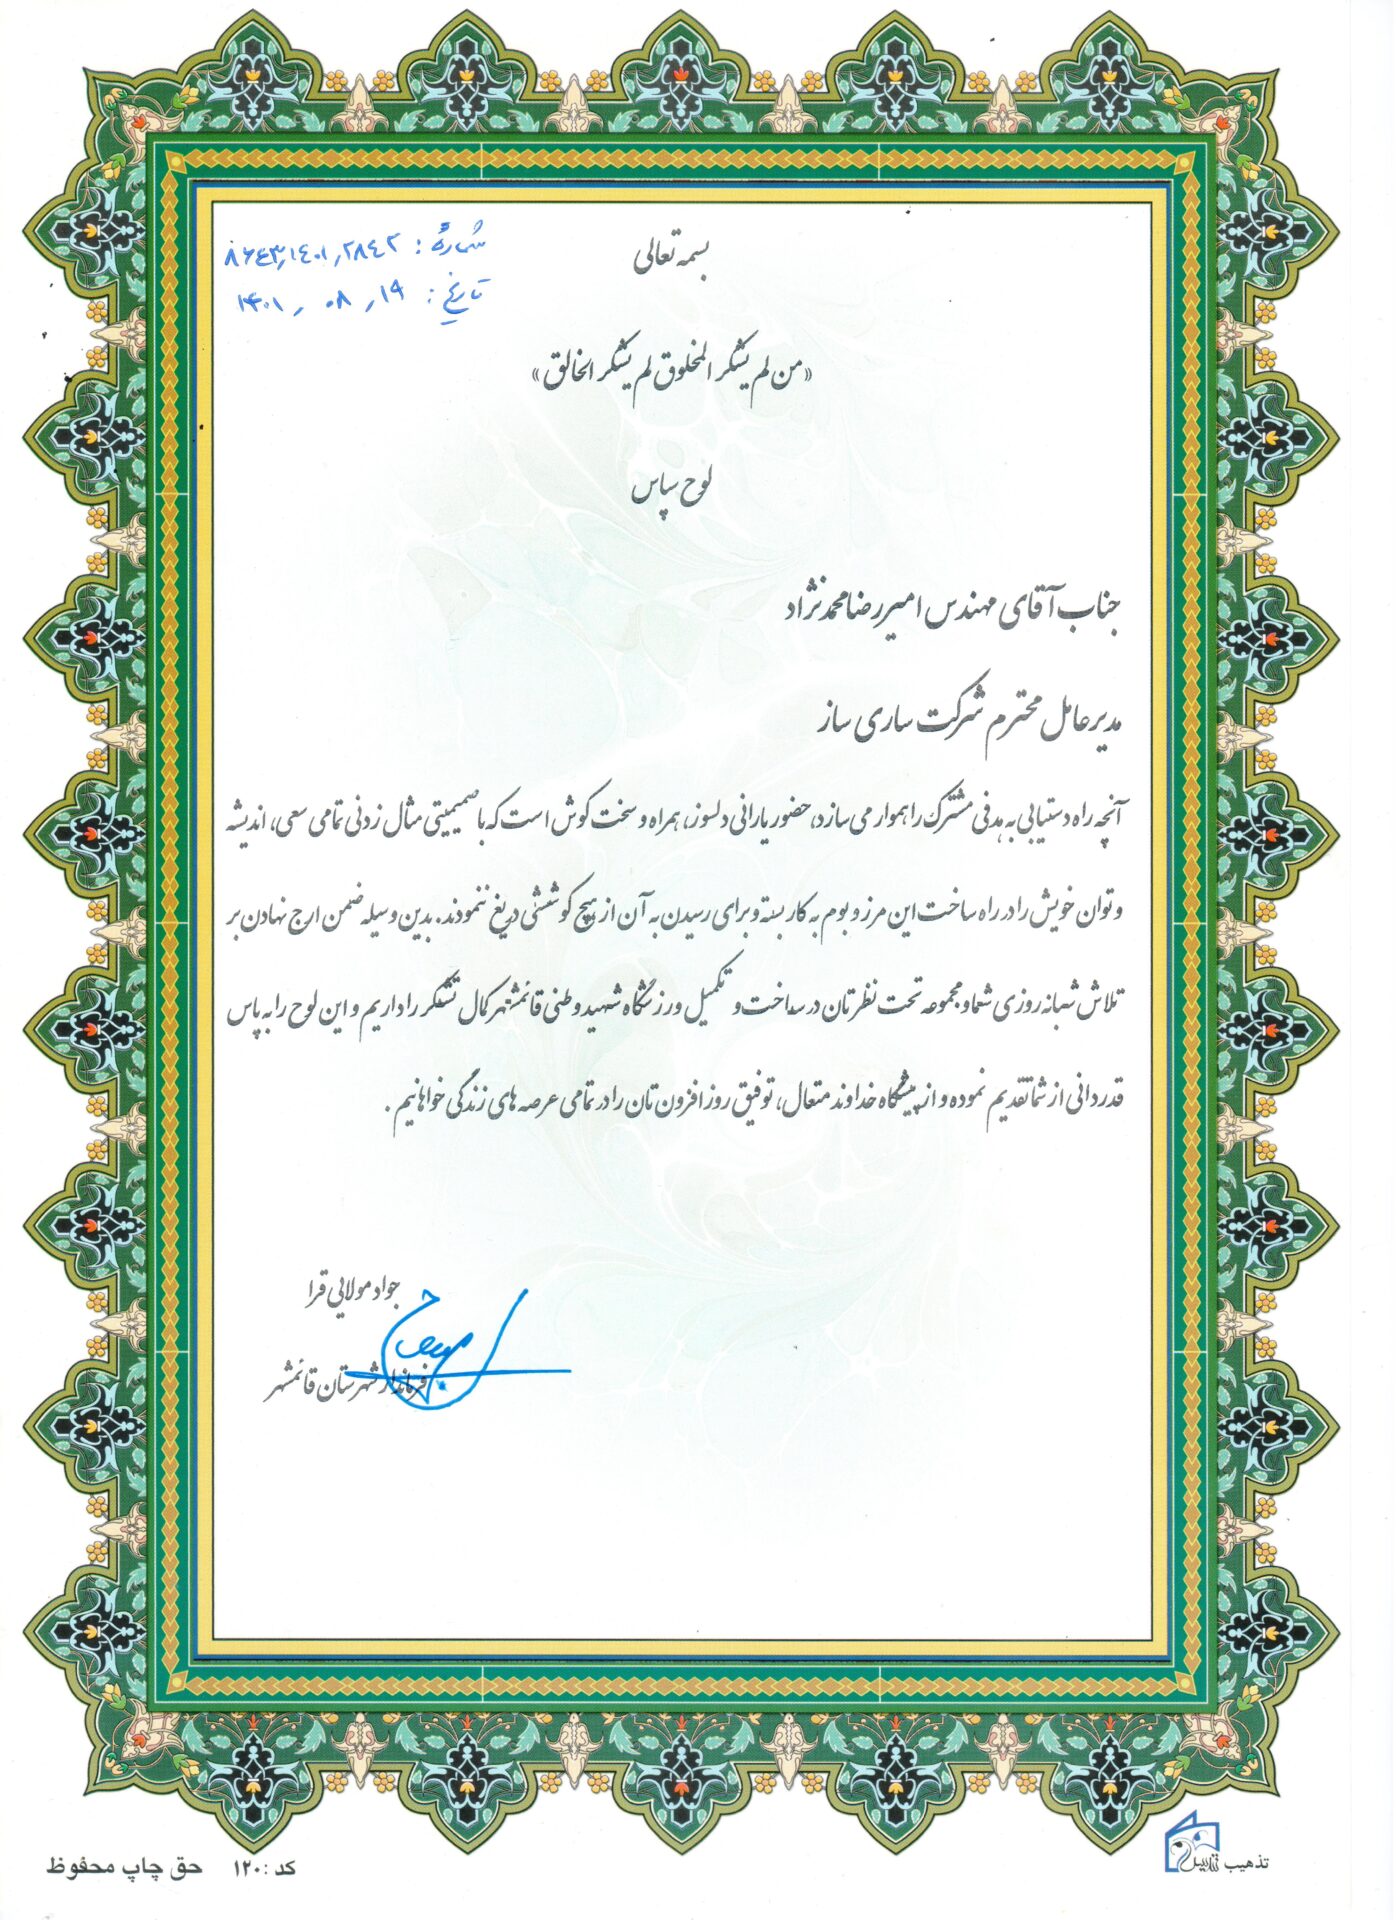 بسمه تعالی
شماره: ۸۶۴۳٫۱۴۰۱٫۲۸۴۲
تاریخ: ۱۹ ٫ ۰۸ ٫ ۱۴۰۱
«من لم یشکر المخلوق لم یشکر الخالق»
لوح سپاس
جناب آقای مهندس امیررضا محمدنژاد
مدیرعامل محترم شرکت ساری ساز
آنچه راه دستیابی به هدفی مشترک را هموار می سازد، حضور یارانی دلسوز، همراه و سخت کوش است که با صمیمیتی مثال زدنی تمامی سعی، اندیشه
و توان خویش را در راه ساخت این مرز و بوم به کار بسته و برای رسیدن به آن از هیچ کوششی دریغ ننمودند. بدین وسیله ضمن ارج نهادن بر
تلاش شبانه روزی شما و مجموعه تحت نظرتان در ساخت و تکمیل ورزشگاه شهید وطنی قائمشهر کمال تشکر را داریم و این لوح را به پاس
قدردانی از شما تقدیم نموده و از پیشگاه خداوند متعال، توفیق روزافزون تان را در تمامی عرصه های زندگی خواهانیم.
جواد مولایی قرا
فرماندار شهرستان قائمشهر
تذهیب تندیس
کد: ۱۲۰ حق چاپ محفوظ